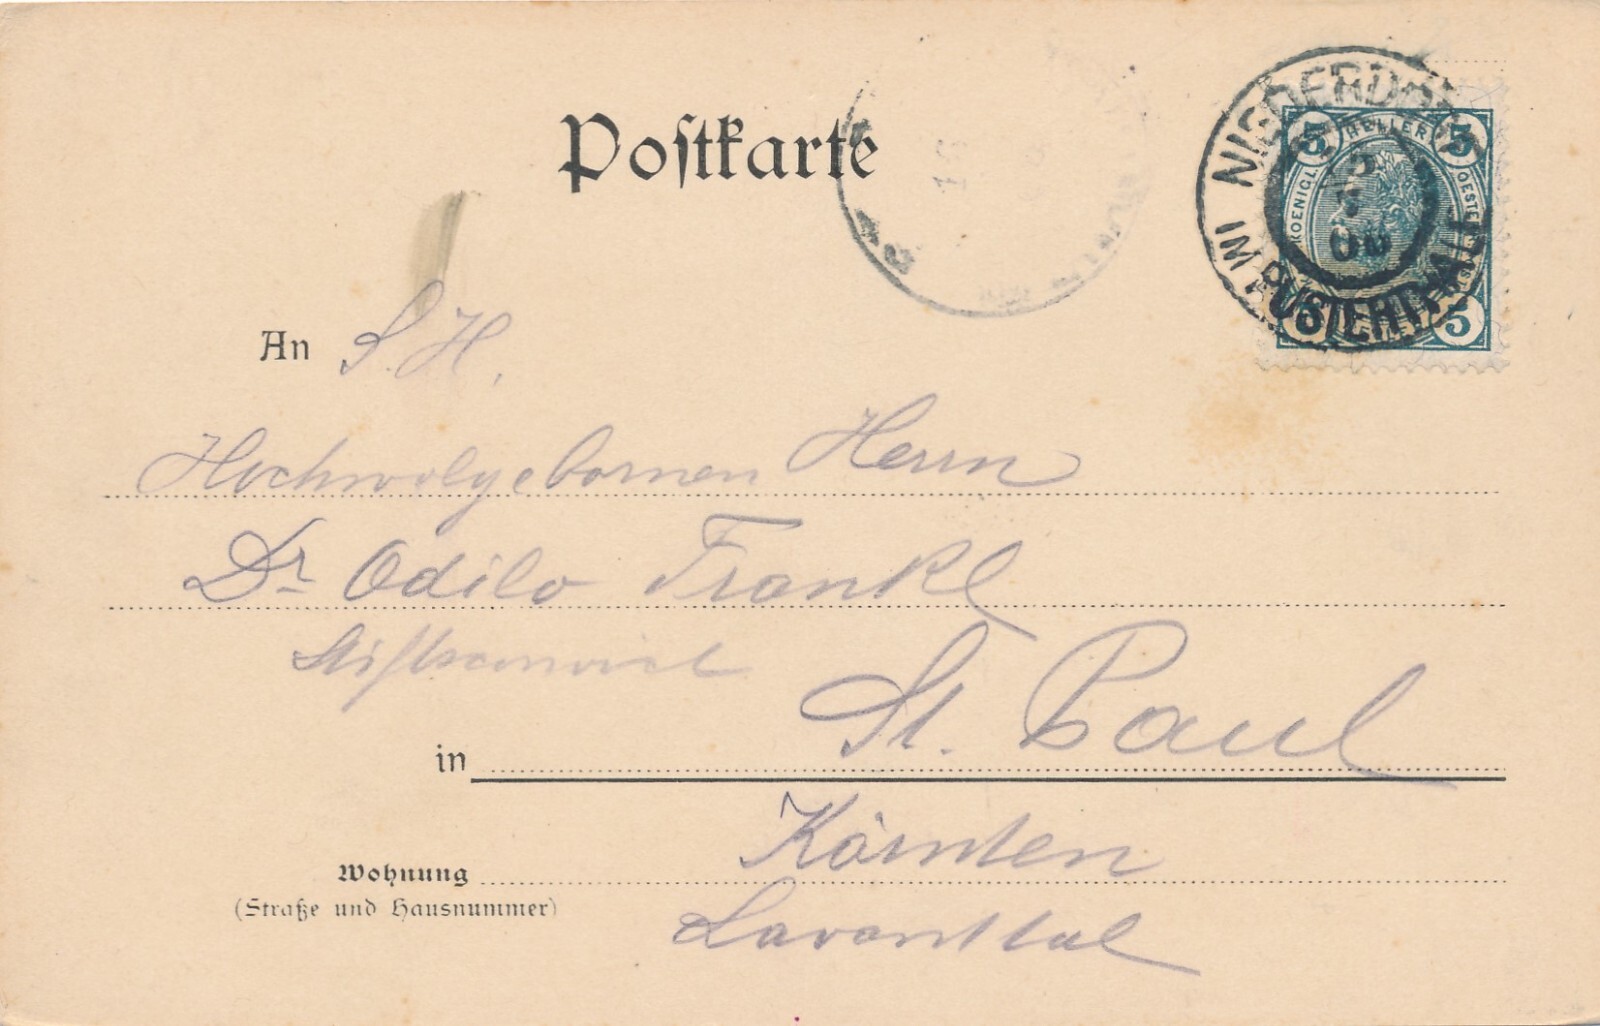 Postkarte
NIEDERDORF
IM PUSTERTHALE
5 HELLER 5
5 5
An S. H.
Hochwolgebornen Herrn
Dr. Odilo Frankl
Stiftsconvict
St. Paul
in
Kärnten
Wohnung
(Straße und Hausnummer)
Lavanttal